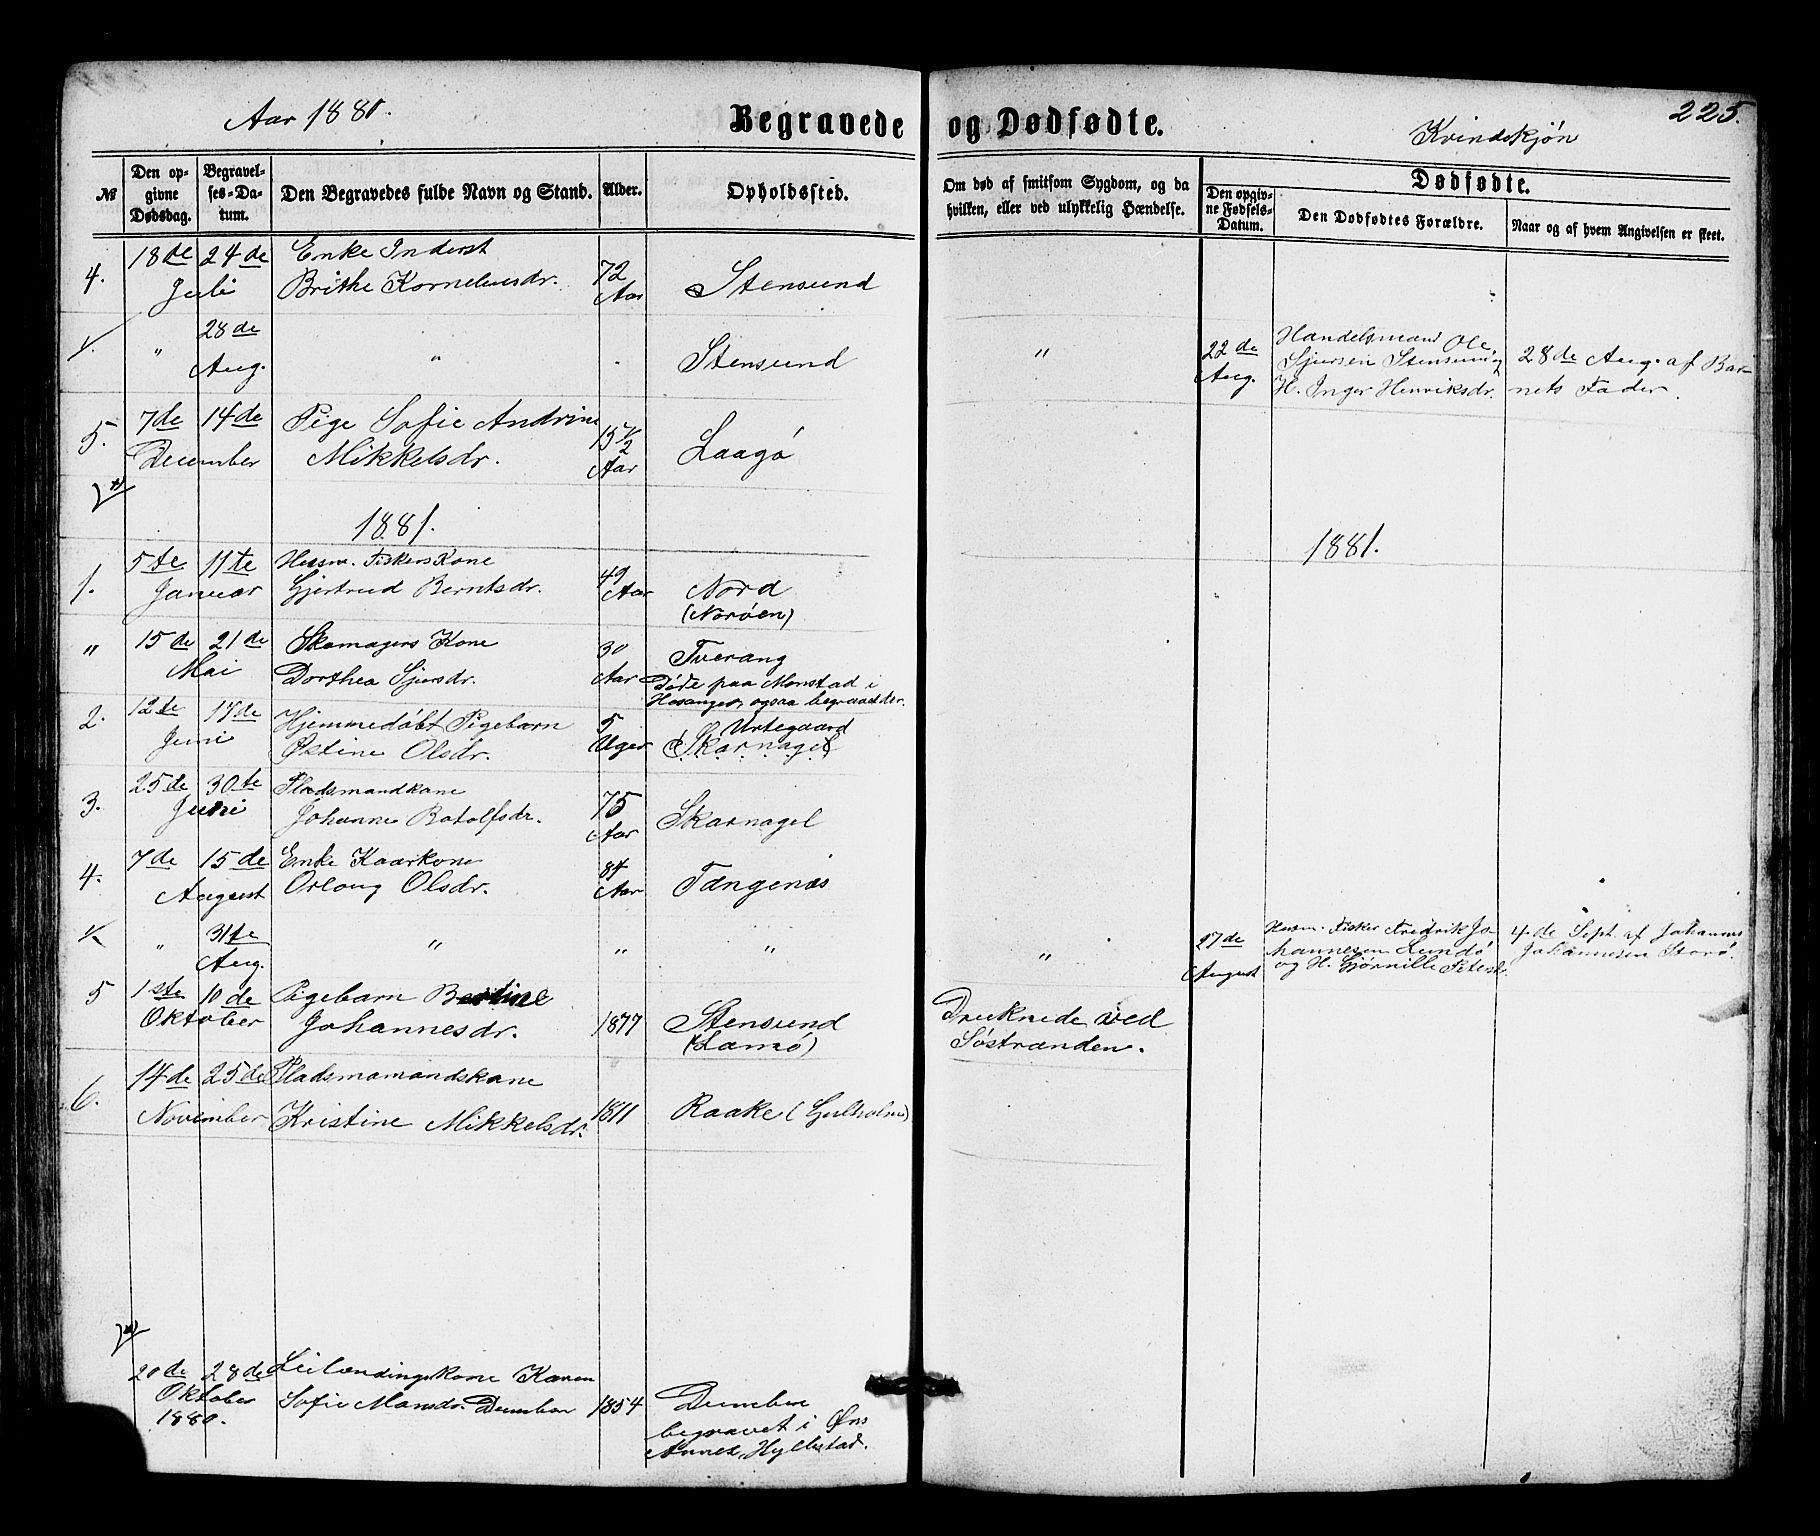 Aar 1880.
Begravede og Dødfødte.
Kvindekjøn
225.
№
Den opgivne Dødsdag.
Begravelses-Datum.
Den Begravedes fulde Navn og Stand.
Alder.
Opholdssted.
Om død af smitsom Sygdom, og da
hvilken, eller ved ulykkelig Hændelse.
Dødfødte.
Den opgivne Fødsels-Datum.
Den Dødfødtes Forældre.
Naar og af hvem Angivelsen er skeet.
4. 18de 24de Enke Inderst 72
Juli Brithe Kornelius dr. Aar Stensund
28de
" Aug. " Stensund " 22de Aug.
Handelsmand Ole
Sjursen Stensund
H. Inger Henriksdr.
28de Aug. af Bar-
nets Fader.
5. 7de 14de Pige Sofie Andrine 15 1/2
December Mikkelsdr. Aar Laagø
1881.
1881.
1. 5te 11te Husm. Fiskers Kone 49
Januar Gjertrud Berntsdr. Aar Nord
(Norøen)
" 15de 21de Skomagers Kone 30 Tverang
Mai Dorthea Sjursdr. Aar Døde paa Monstad i
Hosanger, ogsaa begravet der.
2. 12te 17de Hjemmedøbt Pigebarn 5 Urtegaard
Juni Østine Olsdr. Uger Skarnagel
3. 25de 30te Pladsmandkone 75
Juni Johanne Botolfsdr. Aar Skarnagel
4. 7de 15de Enke Kaarkone 84
August Orloug Olsdr. Aar Tangenæs
31te
" Aug. " " " " 27de August
Husm. Fisker Fredrik Jo-
hannesen Lundø
og H. Gjørnille Petersd.
4de Sept. af Johannes
Johannesen Storø.
5 1ste 10de Pigebarn Bertine
Oktober Johannesdr. 1877 Stensund
(Lamø)
Druknede ved
Søstranden.
6. 14de 25de Pladsmamandskone
November Kristine Mikkelsdr. 1811 Raake (Gulholm)
20de 28de Leilændingskone Karen
Oktober Sofie Monsdr. Dumbe 1854 Dumbe
1880. begravet i Øns
Annex, Hyllestad.